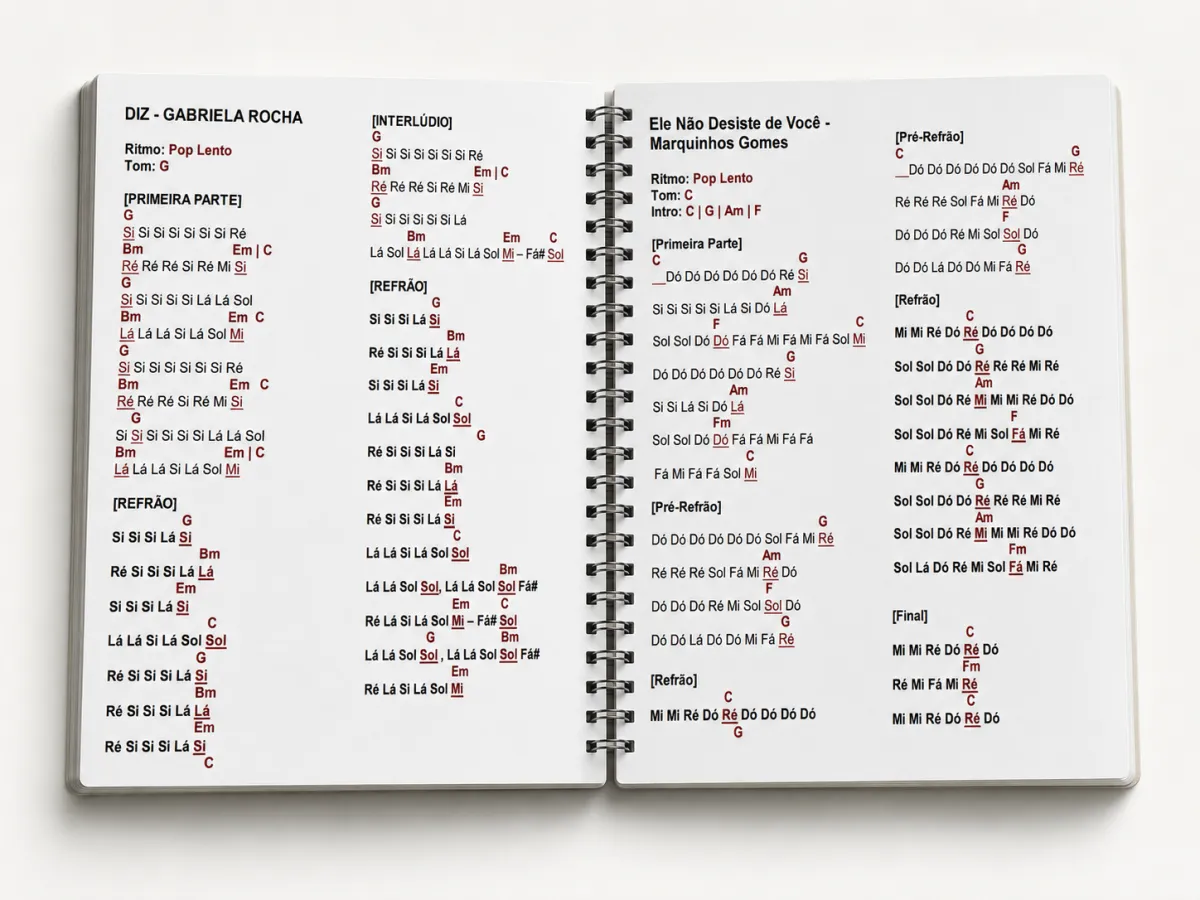 DIZ - GABRIELA ROCHA
Ritmo: Pop Lento
Tom: G
[PRIMEIRA PARTE]
G
Si Si Si Si Si Si Si Ré
Bm Em | C
Ré Ré Ré Si Ré Mi Si
G
Si Si Si Si Si Lá Lá Sol
Bm Em C
Lá Lá Lá Si Lá Sol Mi
G
Si Si Si Si Si Si Si Ré
Bm Em C
Ré Ré Ré Si Ré Mi Si
G
Si Si Si Si Si Si Lá Lá Sol
Bm Em | C
Lá Lá Lá Si Lá Sol Mi
[REFRÃO]
G
Si Si Si Lá Si
Bm
Ré Si Si Si Lá Lá
Em
Si Si Si Lá Si
C
Lá Lá Si Lá Sol Sol
G
Ré Si Si Si Lá Si
Bm
Ré Si Si Si Lá Lá
Em
Ré Si Si Si Lá Si
C
[INTERLÚDIO]
G
Si Si Si Si Si Si Si Ré
Bm Em | C
Ré Ré Ré Si Ré Mi Si
G
Si Si Si Si Si Si Lá
Bm Em C
Lá Sol Lá Lá Lá Si Lá Sol Mi – Fá# Sol
[REFRÃO]
G
Si Si Si Lá Si
Bm
Ré Si Si Si Lá Lá
Em
Si Si Si Lá Si
C
Lá Lá Si Lá Sol Sol
G
Ré Si Si Si Lá Si
Bm
Ré Si Si Si Lá Lá
Em
Ré Si Si Si Lá Si
C
Lá Lá Si Lá Sol Sol
Bm
Lá Lá Sol Sol, Lá Lá Sol Sol Fá#
Em C
Ré Lá Si Lá Sol Mi – Fá# Sol
G Bm
Lá Lá Sol Sol , Lá Lá Sol Sol Fá#
Em
Ré Lá Si Lá Sol Mi
Ele Não Desiste de Você -
Marquinhos Gomes
Ritmo: Pop Lento
Tom: C
Intro: C | G | Am | F
[Primeira Parte]
C G
__Dó Dó Dó Dó Dó Dó Ré Si
Am
Si Si Si Si Si Lá Si Dó Lá
F C
Sol Sol Dó Dó Fá Fá Mi Fá Mi Fá Sol Mi
G
Dó Dó Dó Dó Dó Dó Ré Si
Am
Si Si Lá Si Dó Lá
Fm
Sol Sol Dó Dó Fá Fá Mi Fá Fá
C
Fá Mi Fá Fá Sol Mi
[Pré-Refrão]
G
Dó Dó Dó Dó Dó Dó Sol Fá Mi Ré
Am
Ré Ré Ré Sol Fá Mi Ré Dó
F
Dó Dó Dó Ré Mi Sol Sol Dó
G
Dó Dó Lá Dó Dó Mi Fá Ré
[Refrão]
C
Mi Mi Ré Dó Ré Dó Dó Dó Dó
G
[Pré-Refrão]
C G
__Dó Dó Dó Dó Dó Dó Sol Fá Mi Ré
Am
Ré Ré Ré Sol Fá Mi Ré Dó
F
Dó Dó Dó Ré Mi Sol Sol Dó
G
Dó Dó Lá Dó Dó Mi Fá Ré
[Refrão]
C
Mi Mi Ré Dó Ré Dó Dó Dó Dó
G
Sol Sol Dó Dó Ré Ré Ré Mi Ré
Am
Sol Sol Dó Ré Mi Mi Mi Ré Dó Dó
F
Sol Sol Dó Ré Mi Sol Fá Mi Ré
C
Mi Mi Ré Dó Ré Dó Dó Dó Dó
G
Sol Sol Dó Dó Ré Ré Ré Mi Ré
Am
Sol Sol Dó Ré Mi Mi Mi Ré Dó Dó
Fm
Sol Lá Dó Ré Mi Sol Fá Mi Ré
[Final]
C
Mi Mi Ré Dó Ré Dó
Fm
Ré Mi Fá Mi Ré
C
Mi Mi Ré Dó Ré Dó